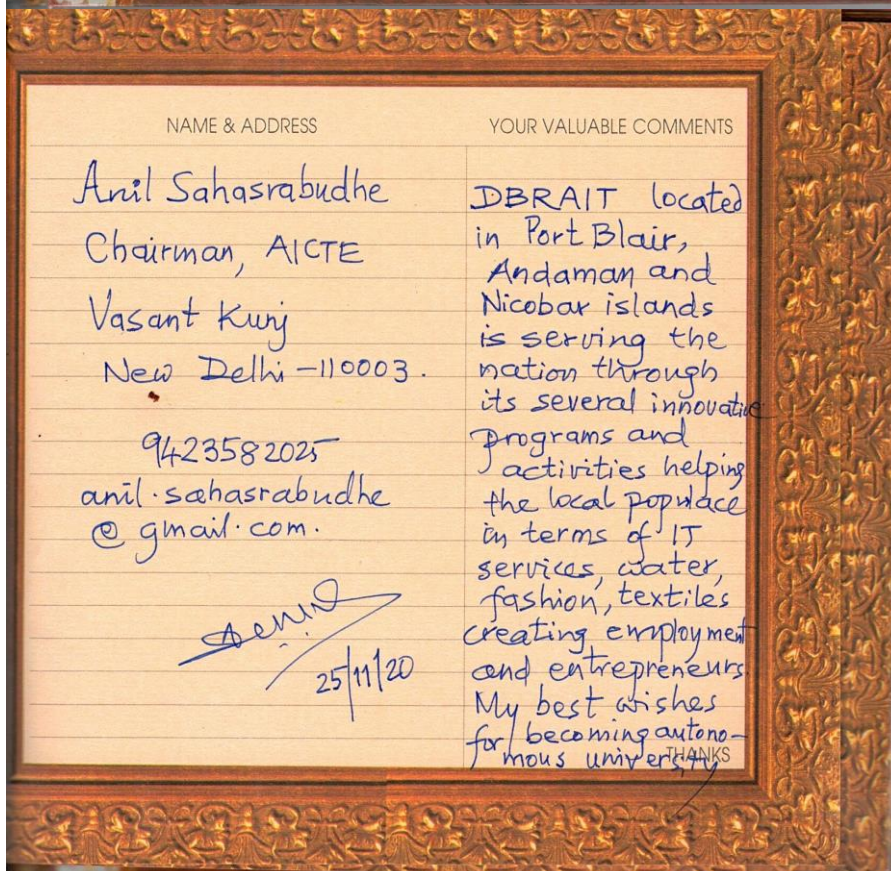 NAME & ADDRESS
Anil Sahasrabudhe
Chairman, AICTE
Vasant Kunj
New Delhi -110003.
9423582025
anil.sahasrabudhe
@gmail.com.
25/11/20
YOUR VALUABLE COMMENTS
DBRAIT located
in Port Blair,
Andaman and
Nicobar islands
is serving the
nation through
its several innovative
programs and
activities helping
the local populace
in terms of IT
services, water,
fashion, textiles
creating employment
and entrepreneurs.
My best wishes
for becoming autono-
mous university
THANKS